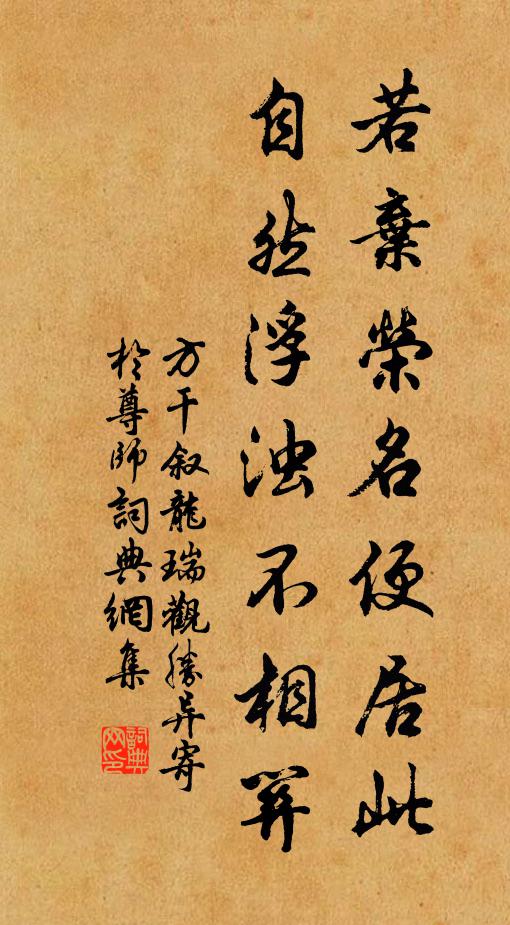 若棄榮名便居此
自然浮浊不相關
方干叙龍瑞觀勝异寄
於尊師詞典網集
詞典网印